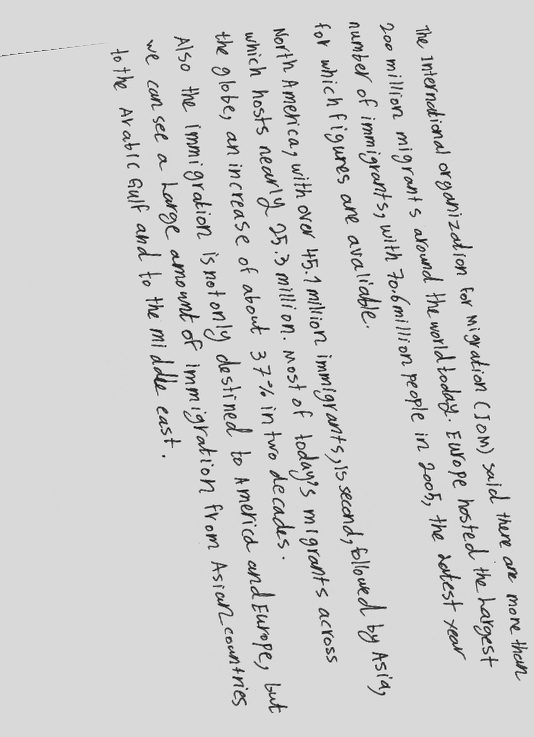 The International organization for Migration (IOM) said there are more than
200 million migrants around the world today. Europe hosted the Largest
number of immigrants, with 70.6 million people in 2005, the Latest year
for which figures are avaliable.
North America, with over 45.1 million immigrants, is second, followed by Asia,
which hosts nearly 25.3 million. Most of today's migrants across
the globe, an increase of about 37% in two decades.
Also the immigration is not only destined to America and Europe, but
we can see a Large amount of immigration from Asian countries
to the Arabic Gulf and to the middle east.